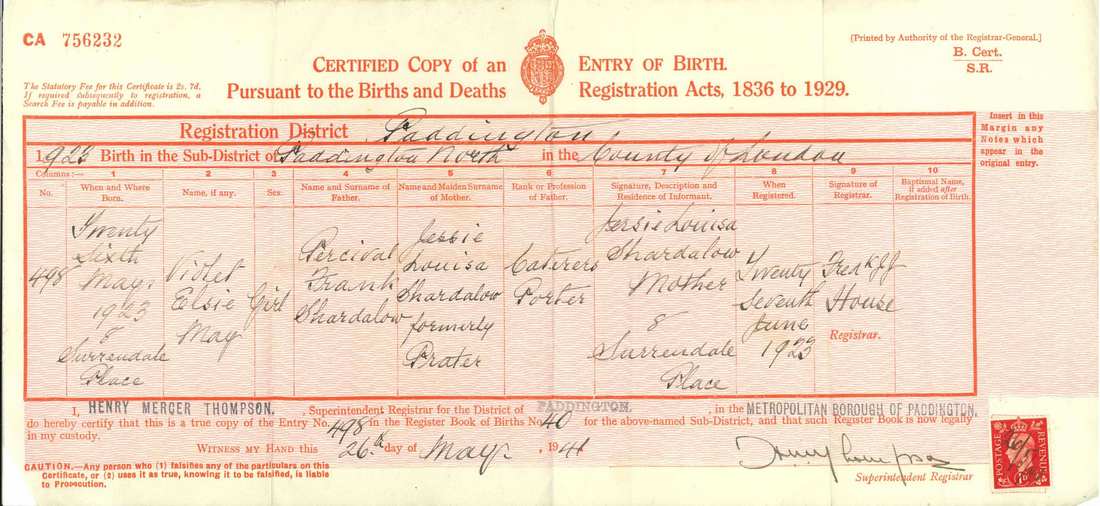 CA 756232
(Printed by Authority of the Registrar-General.]
B. Cert.
S.R.
CERTIFIED COPY of an ENTRY OF BIRTH.
Pursuant to the Births and Deaths Registration Acts, 1836 to 1929.
The Statutory Fee for this Certificate is 2s. 7d.
If required subsequently to registration, a
Search Fee is payable in addition.
Insert in this
Margin any
Notes which
appear in the
original entry.
Registration District Paddington
1923 Birth in the Sub-District of Paddington North in the County of London
Columns:— 1 2 3 4 5 6 7 8 9 10
No. When and Where Born. Name, if any. Sex. Name and Surname of Father. Name and Maiden Surname of Mother. Rank or Profession of Father. Signature, Description and Residence of Informant. When Registered. Signature of Registrar. Baptismal Name, if added after Registration of Birth.
498
Twenty
Sixth
May
1923
8
Surrendale
Place
Violet
Elsie
May
Girl
Percival
Frank
Shardalow
Jessie
Louisa
Shardalow
formerly
Prater
Caterers
Porter
Jessie Louisa
Shardalow
Mother
8
Surrendale
Place
Twenty
Seventh
June
1923
Fredk
House
Registrar.
I, HENRY MERCER THOMPSON, Superintendent Registrar for the District of PADDINGTON, in the METROPOLITAN BOROUGH OF PADDINGTON,
do hereby certify that this is a true copy of the Entry No. 498 in the Register Book of Births No. 40 for the above-named Sub-District, and that such Register Book is now legally
in my custody.
WITNESS MY HAND this 26th day of May, 1941
CAUTION.—Any person who (1) falsifies any of the particulars on this
Certificate, or (2) uses it as true, knowing it to be falsified, is liable
to Prosecution.
Superintendent Registrar
POSTAGE
REVENUE
1D